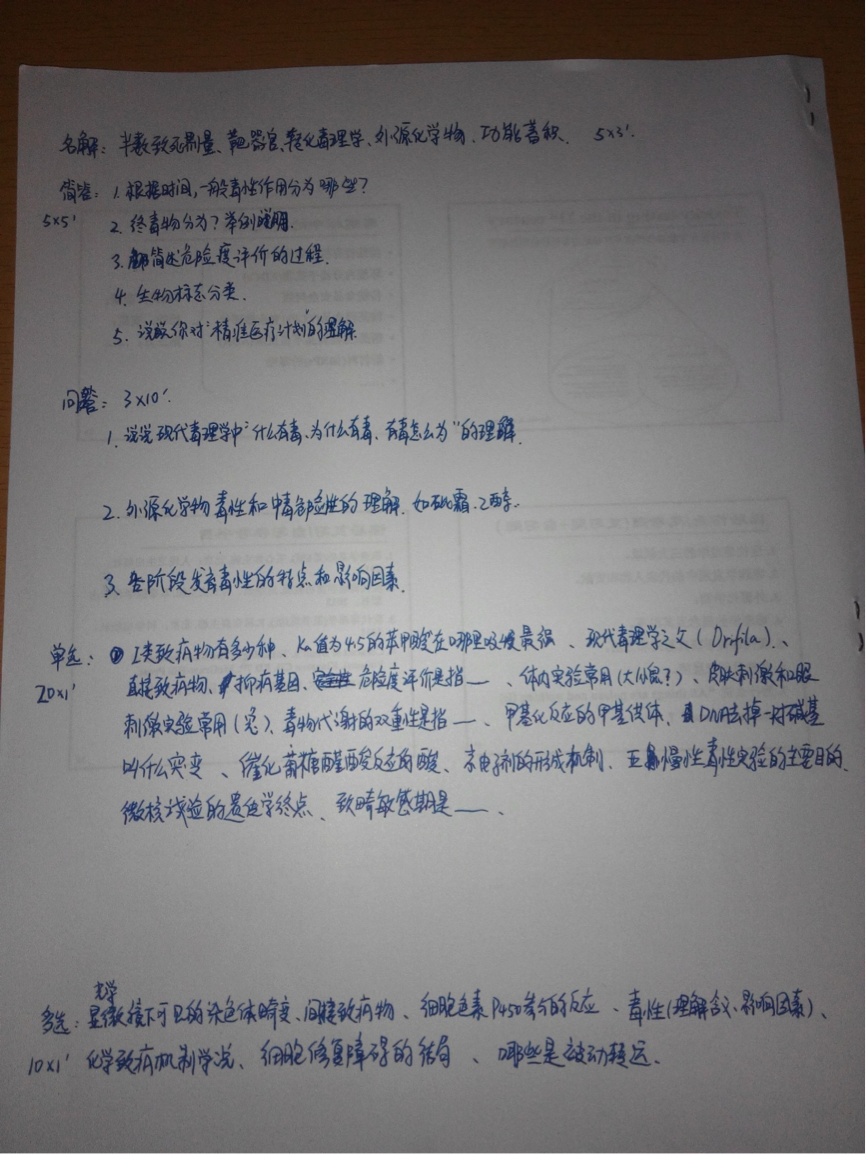 名解：半数致死剂量、靶器官、转化毒理学、外源化学物、功能蓄积. 5×3'.
简答：1. 根据时间，一般毒性作用分为哪些？
5×5' 2. 终毒物分为？举例说明.
3. 简述危险度评价的过程.
4. 生物标志分类.
5. 谈谈你对"精准医疗计划"的理解
问答：3×10'.
1. 说说现代毒理学中"什么有毒、为什么有毒、有毒怎么为"的理解.
2. 外源化学物毒性和中毒部位性的理解. 如砒霜、乙醇.
3. 各阶段发育毒性的特点和影响因素.
单选：① I类致癌物有多少种、Ka值为4.5的苯甲酸在哪里吸收最强、现代毒理学之父（Orfila）、
20×1' 直接致癌物、抑癌基因、危险度评价是指__、体内实验常用(大小鼠?)、皮肤刺激和眼
刺激实验常用(兔)、毒物代谢的双重性是指__、甲基化反应的甲基供体、DNA去掉一对碱基
叫什么突变、催化葡糖醛酸反应的酸、亲电子剂的形成机制、亚慢性毒性实验的主要目的、
微核试验的遗传学终点、致畸敏感期是__、
光学
多选：显微镜下可见的染色体畸变、间接致癌物、细胞色素P450参与的反应、毒性(理解含义、影响因素)、
10×1' 化学致癌机制学说、细胞修复障碍的结局、哪些是被动转运、